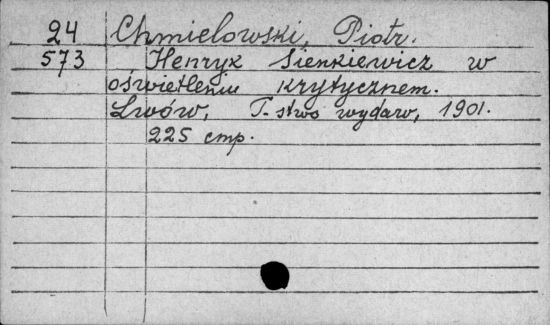 24 Chmielowski, Piotr.
573 Henryk Sienkiewicz w
oświetleniu krytycznem.
Lwów, T-stwo wydaw, 1901.
225 cmp.